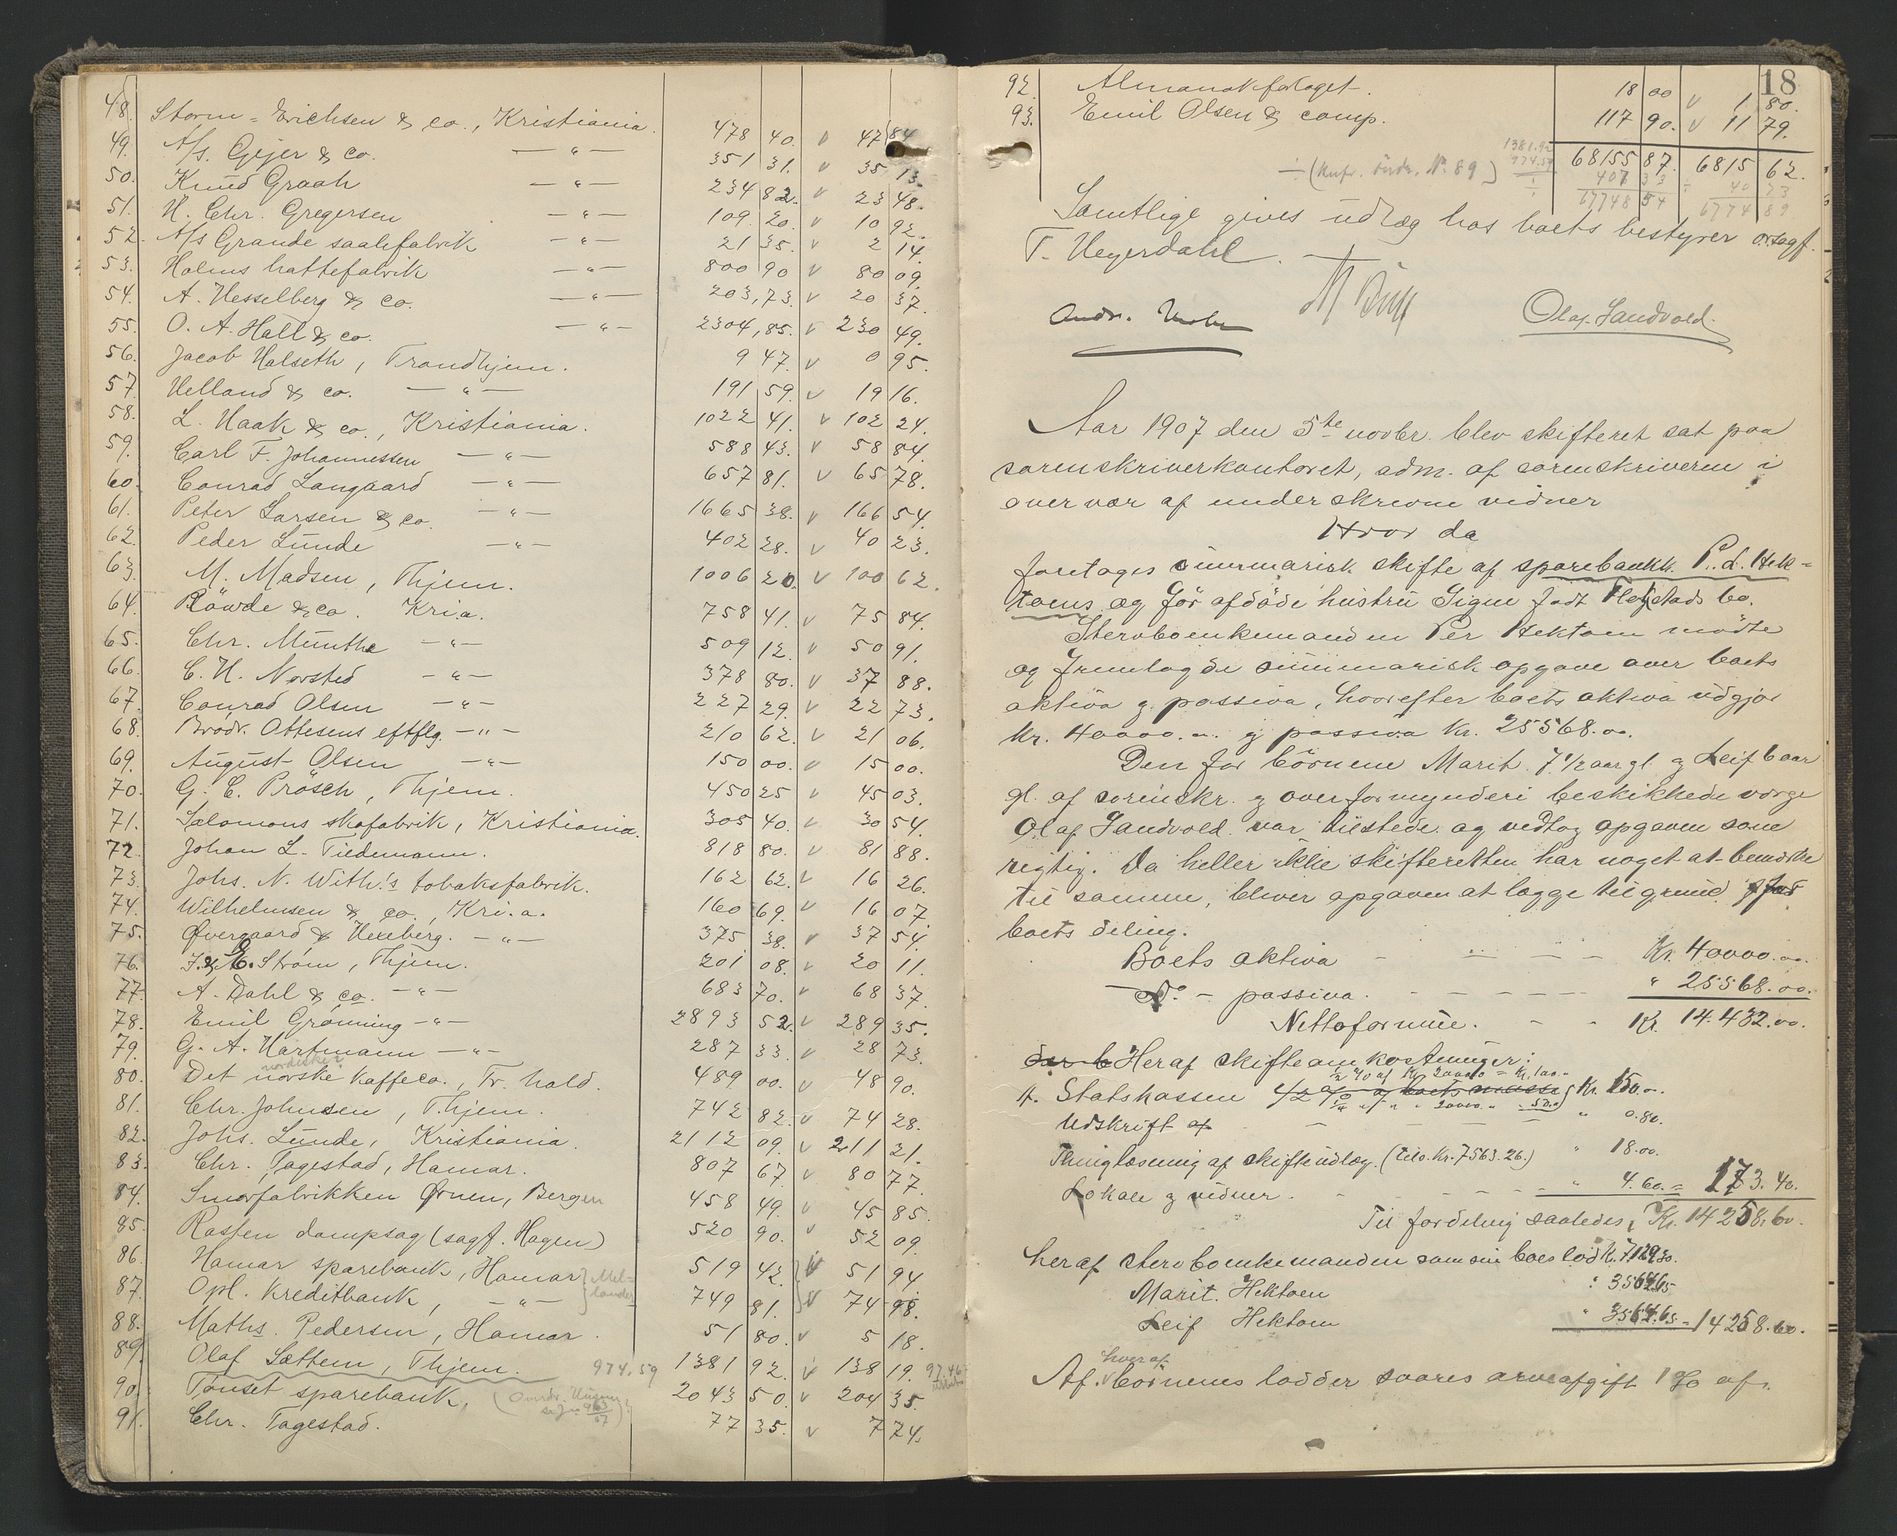 48. Storm-Erichsen & co., Kristiania. 478 40. v 47 84
49. A/s. Gejer & co. — „ — 351 31. v 35 13.
50. Knud Graah — „ — 234 82. v 23 48.
51. H. Chr. Gregersen — „ — 109 20. v 10 92.
52. A/s Grande saalefabrik — „ — 21 35. v 2 14.
53. Holms hattefabrik — „ — 800 90 v 80 09.
54. A. Hesselberg & co. — „ — 203,73. v 20 37.
55. O. A. Hall & co. — „ — 2304,85. v 230 49.
56. Jacob Halseth, Trondhjem. 9 47. v 0 95.
57. Helland & co. — „ — 191 59. v 19 16.
58. L. Haak & co., Kristiania. 1022 41. v 102 24.
59. Carl F. Johannessen — „ — 588 43. v 58 84.
60. Conrad Langaard — „ — 657 81. v 65 78.
61. Peter Larsen & co. — „ — 1665 38. v 166 54.
62. Peder Lunde — „ — 402 28. v 40 23.
63. M. Madsen, Thjem. 1006 20. v 100 62.
64. Röwde & co. Kri.a. 758 41. v 75 84.
65. Chr. Munthe — „ — 509 12. v 50 91.
66. C. H. Norsted — „ — 378 80. v 37 88.
67. Conrad Olsen — „ — 227 29. v 22 73.
68. Brødr. Ottesens eftflg. — „ — 210 62. v 21 06.
69. August Olsen — „ — 150 00. v 15 00.
70. G. C. Prösch, Thjem. 450 25 v 45 03.
71. Salomons skofabrik, Kristiania. 305 40. v 30 54.
72. Johan L. Tiedemann. 818 80. v 81 88.
73. Johs. N. With's tobaksfabrik. 162 62. v 16 26.
74. Wilhelmsen & co., Kri.a. 160 69. v 16 07.
75. Øvergaard & Hexeberg. — „ — 375 38. v 37 54.
76. I. & E. Strøm, Thjem. 201 08. v 20 11.
77. A. Dahl & co. — „ — 683 70. v 68 37.
78. Emil Grønning — „ — 2893 52. v 289 35.
79. G. A. Hartmann — „ — 287 33. v 28 73.
nordiske
80. Det norske kaffeco., Fr. hald. 489 00. v 48 90.
81. Chr. Johnsen, Thjem. 742 82. v 74 28.
82. Johs. Lunde, Kristiania. 2112 09. v 211 21.
83. Chr. Tagestad, Hamar. 807 67. v 80 77.
84. Smørfabrikken Ørnen, Bergen 458 49. v 45 85.
85. Rasten dampsag (sagf. Hagen) 520 90. v 52 09.
86. Hamar sparebank, Hamar 519 42. v 51 94
87. Opl. Kreditbank, — „ — 749 81. v 74 98.
88. Maths. Pedersen, Hamar. 51 80. v 5 18.
89. Olaf Sættem, Thjem. 974.59 1381 92. v 138 19. 97.46
90. Tønset sparebank, 2043 50. v 204 35.
91. Chr. Tagestad. 77 35. v 7 74.
18
92. Almanakforlaget. 18 00 v 1 80.
93. Emil Olsen & comp. 117 90. v 11 79.
1381.92
974.59
68155 87. 6815 62.
÷ (Knfr. Nº 89) 407 33 ÷ 40 73
67748 54 6774 89
Samtlige gives udlæg hos boets bestyrer o.r.sagf.
T. Heyerdahl. —
Olaf Sandvold.
Aar 1907 den 5te novbr. blev skifteret sat paa
sorenskriverkontoret, adm. af sorenskriveren i
overvær af underskrevne vidner
Hvor da
foretoges summarisk skifte af sparebankk. P. L. Hek-
toens og før afdøde hustru Signe født Flegstads bo.
Stervboenkemanden Per Hektoen mødte
og fremlagde summarisk opgave over boets
aktiva g passiva, hvorefter boets aktiva udgjør
Kr. 40000.00. g passiva Kr. 25568.00.
Den for børnene Marit 7 1/2 aar gl. g Leif 6 aar
gl. af sorenskr. g overformynderi beskikkede værge
Olaf Sandvold var tilstede og vedtog opgaven som
rigtig. Da heller ikke skifteretten har noget at bemærke
til samme, bliver opgaven at lægge til grund ved
boets deling.
Boets aktiva - - - - Kr. 40000.00.
Do. - passiva. - - - - „ 25568.00.
Nettoformue. - - Kr. 14.432.00.
Heraf skifteomkostninger:
1/2 % af Kr. 20000 = Kr. 100.-
t. Statskassen 1/2 % af boets masse Kr. 150.00.
1/4 „ „ „ 20000 „ 50.-
Udskrift af - - - - „ 0.80.
Thinglæsning af skifteudlæg. (tilv. Kr. 7563.26.) „ 18.00.
Lokale g vidner. - - - - „ 4.60. = 173.40.
Til fordeling saaledes, Kr. 14258.60.
heraf stervboenkemanden som sin boeslod Kr. 7129.30.
Marit Hektoen „ 3564.65
Leif Hektoen „ 3564.65 = 14258.60.
hver af
Af børnenes lodder svares arveafgift 1 % af.